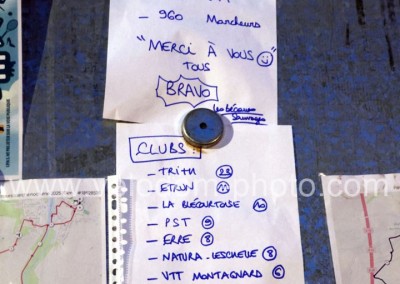 - 960 Marcheurs
"MERCI À VOUS
TOUS
BRAVO
Les bécanes
Sauvages
CLUBS:
- TRITH 23
- ETRUN
- LA BLEDARTOISE 10
- PST 9
- ERRE 8
- NATURA-LESCHELLE 8
- VTT MONTAGNARD 6